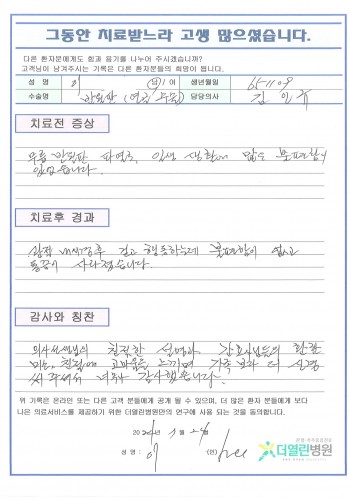 그동안 치료받느라 고생 많으셨습니다.
다른 환자분에게도 힘과 용기를 나누어 주시겠습니까?
고객님이 남겨주시는 기록은 다른 환자분들의 희망이 됩니다.
성 명 이 (남)/여 생년월일
수술명 반월판 (연골 수술) 담당의사 김
치료전 증상
무릎 반월판 파열로, 일상 생활에 많은 불편함이
있었습니다.
치료후 경과
관절 내시경후 걷고 행동하는데 불편함이 없고
통증이 사라졌습니다.
감사와 칭찬
의사선생님의 친절한 설명과 간호사님들의 환한
미소, 친절에 고마움을 느끼며 가족보다 더 신경
써 주셔서 너무 감사했습니다.
위 기록은 온라인 또는 다른 고객 분들에게 공개 될 수 있으며, 더 많은 환자 분들에게 보다
나은 의료서비스를 제공하기 위한 더열린병원만의 연구에 사용 되는 것을 동의합니다.
20 년 월 일
성 명: 이 (인)
더열린병원